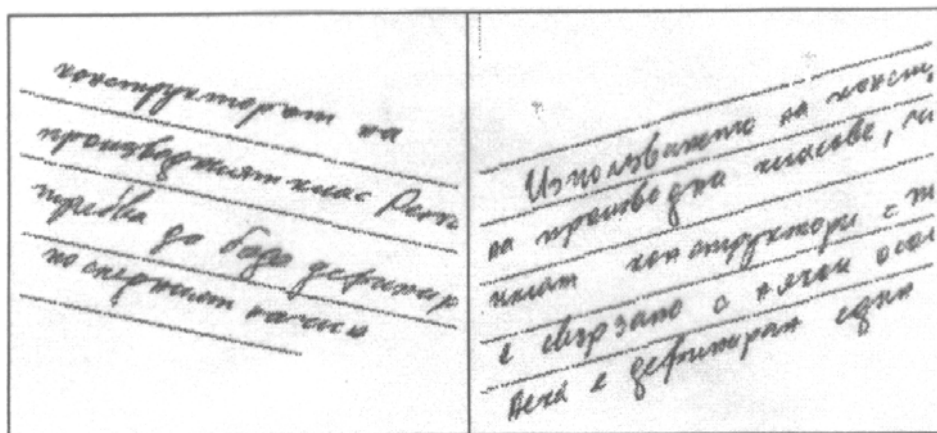 конструкторът на
производният клас
трябва да бъде дефинир
по следният начин
Използването на конст
на производни класове,
имат конструктори с
е свързано с някои осо
Нека е дефиниран един